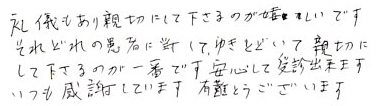 礼儀もあり親切にして下さるのが嬉しいです
それどれの患者に対して,ゆきとどいて親切に
して下さるのが一番です安心して受診出来ます
いつも感謝しています有難とうございます